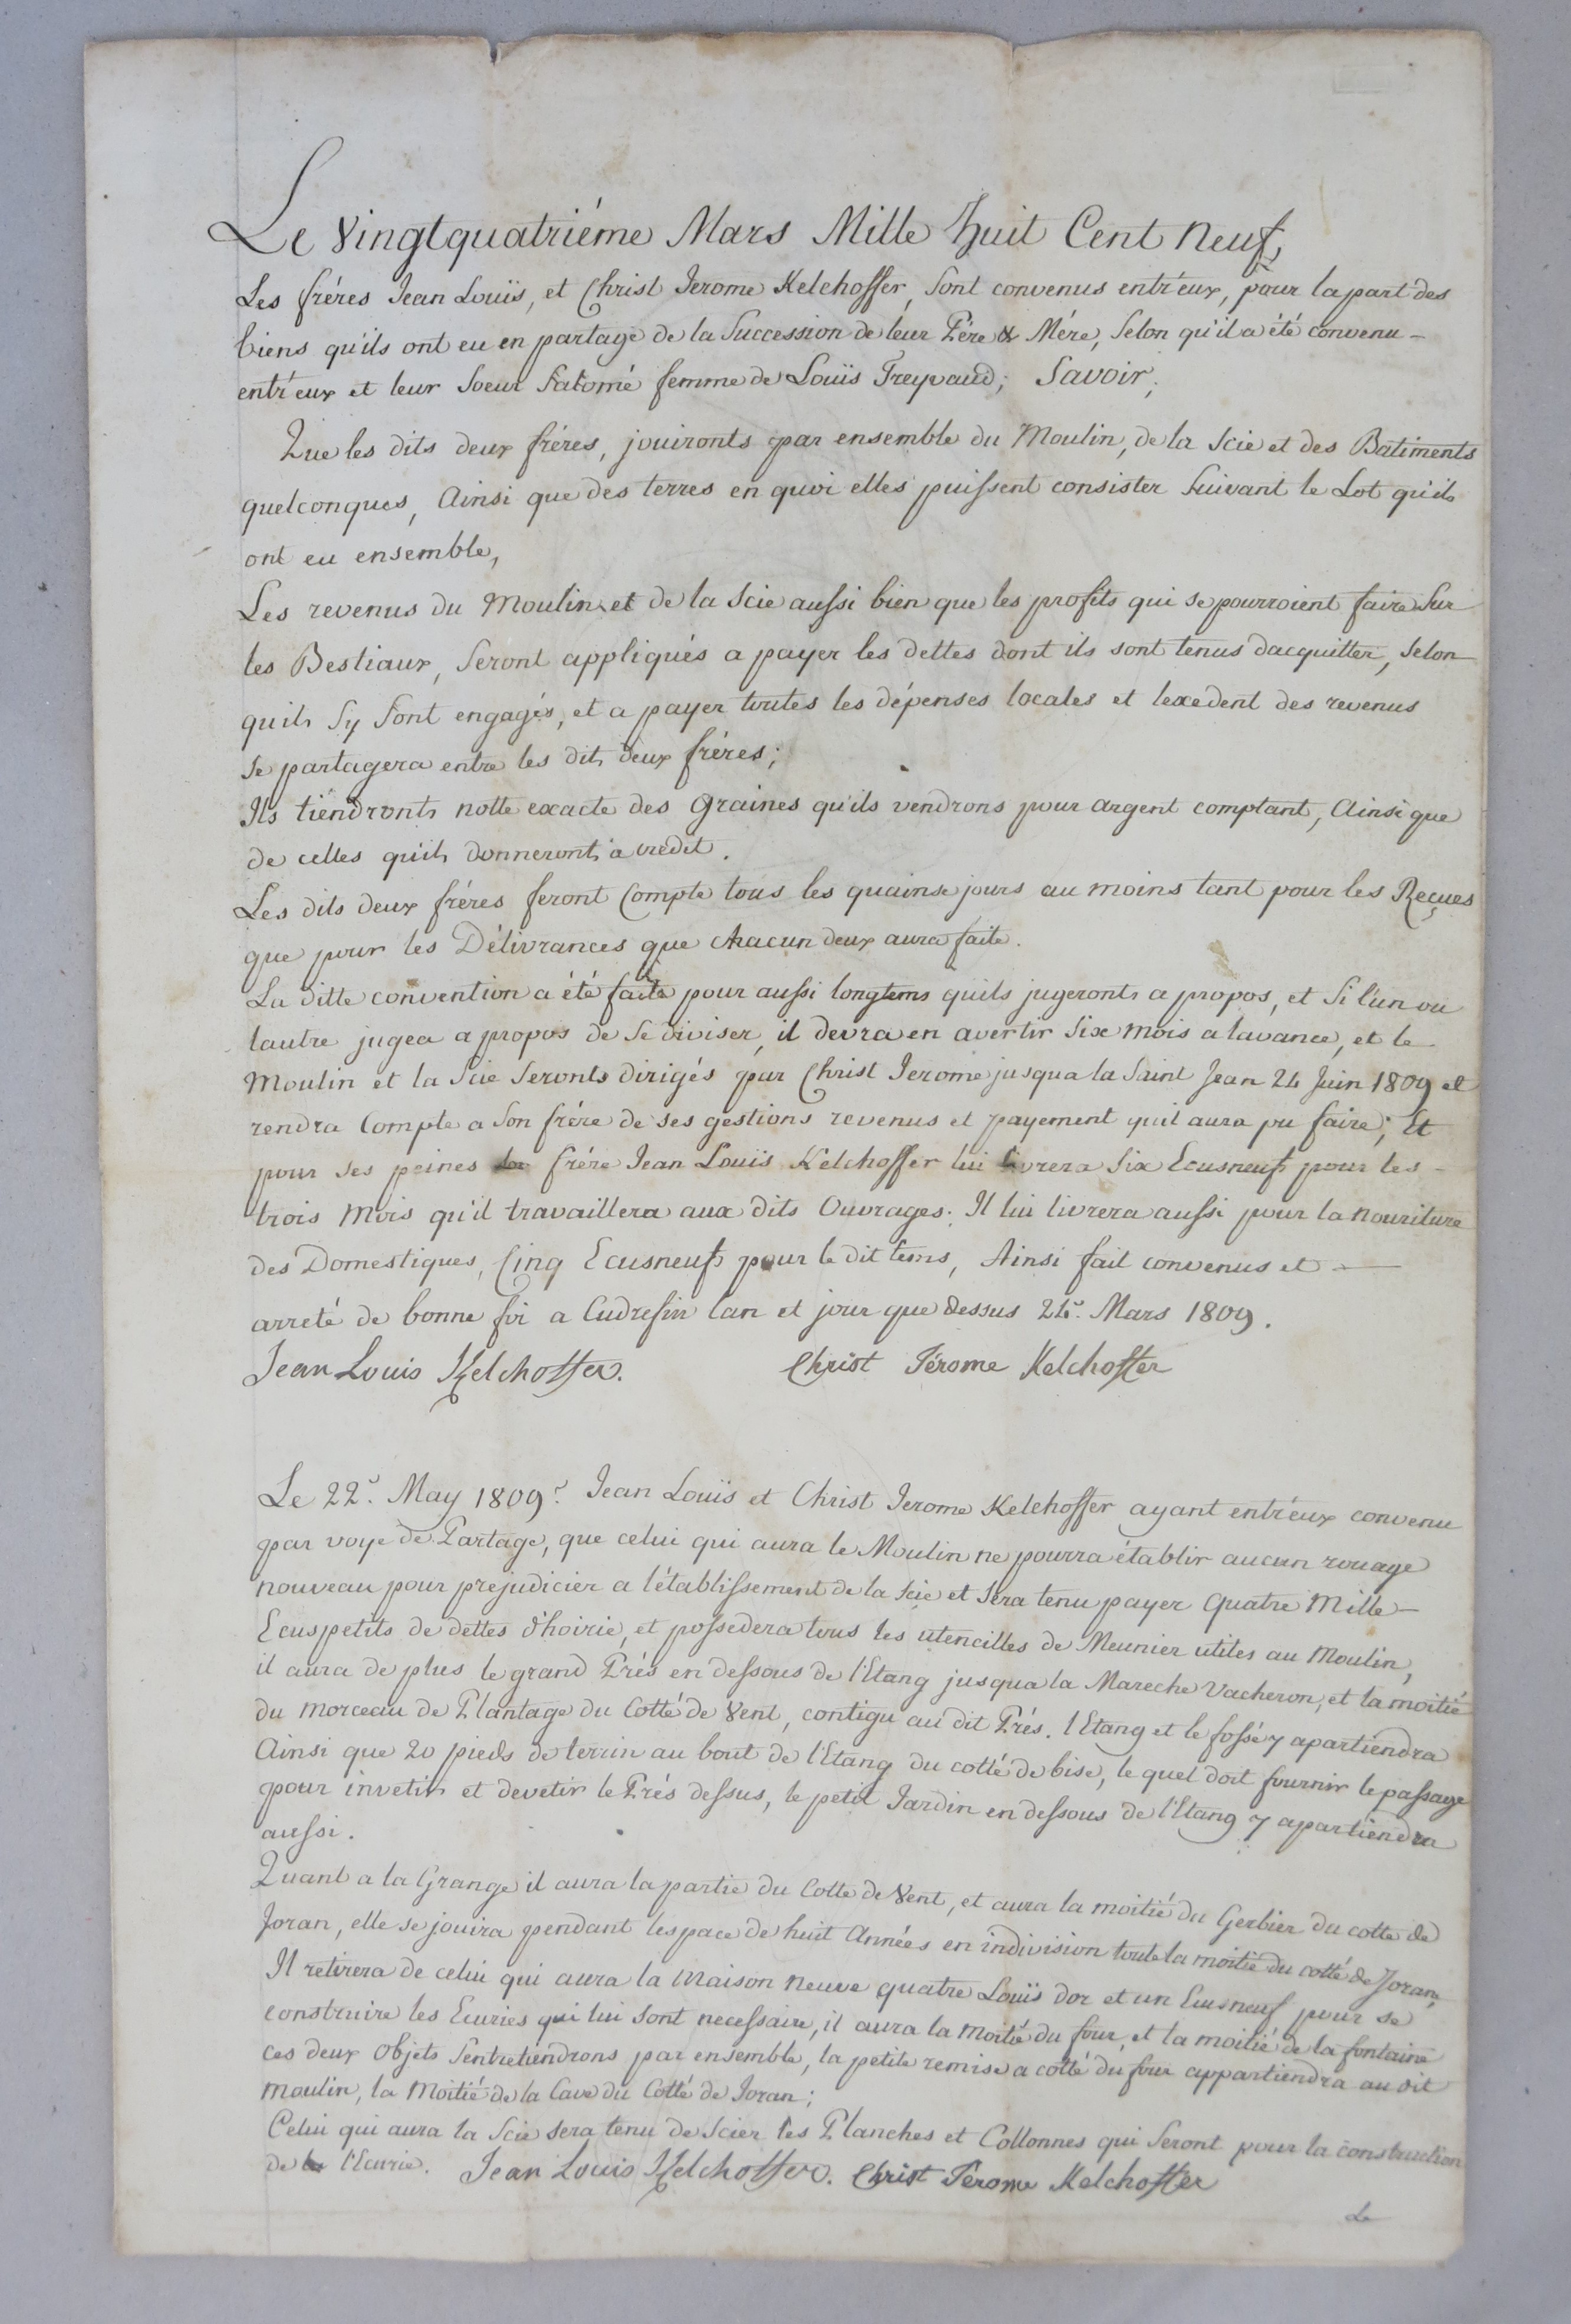 Le Vingtquatriéme Mars Mille huit Cent Neuf,
Les fréres Jean Louïs, et Christ Jerome Kelchoffer, Sont convenus entr'eux, pour la part des
biens qu'ils ont eu en partage de la Succession de leur Pére & Mére, Selon qu'il a été convenu -
entr'eux et leur Soeur Salomé femme de Louïs Treyvaud; Savoir,
Que les dits deux fréres, jouironts par ensemble du Moulin, de la Scie et des Batiments
quelconques, Ainsi que des terres en quoi elles puissent consister Suivant le Lot qu'ils
ont eu ensemble,
Les revenus du Moulin et de la Scie aussi bien que les profits qui se pourroient faire Sur
les Bestiaux, Seront appliqués a payer les dettes dont ils sont tenus dacquitter, Selon
quils Sy Sont engagés, et a payer toutes les dépenses locales et lexedent des revenus
Se partagera entre les dits deux fréres;
Ils tiendronts notte exacte des Graines qu'ils vendrons pour argent comptant, Ainsi que
de celles qu'ils donneronts a credit.
Les dits deux fréres feront Compte tous les quainse jours au moins tant pour les Reçues
que pour les Délivrances que chacun deux aura faite.
La ditte convention a été faite pour aussi longtems quils jugeronts a propos, et Si l'un ou
lautre jugea a propos de Se diviser, il devra en avertir Six mois a lavance, et le
Moulin et la Scie Seronts dirigés par Christ Jerome jusqua la Saint Jean 24 Juin 1809 et
rendra Compte a Son frére de ses gestions revenus et payement quil aura pu faire; Et
pour Ses peines frére Jean Louïs Kelchoffer lui livrera Six Ecusneufs pour les -
trois Mois qu'il travaillera aux dits Ouvrages. Il lui livrera aussi pour la nouriture
des Domestiques, Cinq Ecusneufs pour le dit tems, Ainsi fait convenus et -
arreté de bonne foi a Cudrefin lan et jour que dessus 24e. Mars 1809.
Jean Louis Kelchoffer. Christ Jérome Kelchoffer
Le 22e. May 1809. Jean Louïs et Christ Jerome Kelchoffer ayant entr'eux convenu
par voye de Partage, que celui qui aura le Moulin ne pourra établir aucun rouage
nouveau pour prejudicier a l'établissement de la Scie et Sera tenu payer Quatre Mille -
Ecuspetits de dettes d'hoirie, et possedera tous les utencilles de Meunier utiles au Moulin,
il aura de plus le grand Prés en dessous de l'Etang jusqua la Mareche Vacheron, et la moitié
du morceau de Plantage du Cotté de Vent, contigu au dit Prés. l'Etang et le fossé y apartiendra
Ainsi que 20 pieds de terrin au bout de l'Etang du cotté de bise, le quel doit fournir le passage
pour invetir et devetir le Prés dessus, le petit Jardin en dessous de l'Etang y apartiendra
aussi.
Quant a la Grange il aura la partie du Cotte de Vent, et aura la moitié du Gerbier du cotte de
Joran, elle se jouira pendant lespace de huit Années en indivision toute la moitié du cotté de Joran,
Il retirera de celui qui aura la Maison Neuve quatre Louïs dor et un Ecusneuf pour se
construire les Ecuries qui lui Sont necessaire, il aura la Moitié du four, et la moitié de la fontaine
ces deux Objets Sentretiendrons par ensemble, la petite remise a cotté du four appartiendra au dit
Moulin, la Moitié de la Cave du Cotté de Joran;
Celui qui aura la Scie Sera tenu de Scier les Planches et Collonnes qui Seront pour la construction
de l'Ecurie. Jean Louis Kelchoffer. Christ Jérome Kelchoffer
Le